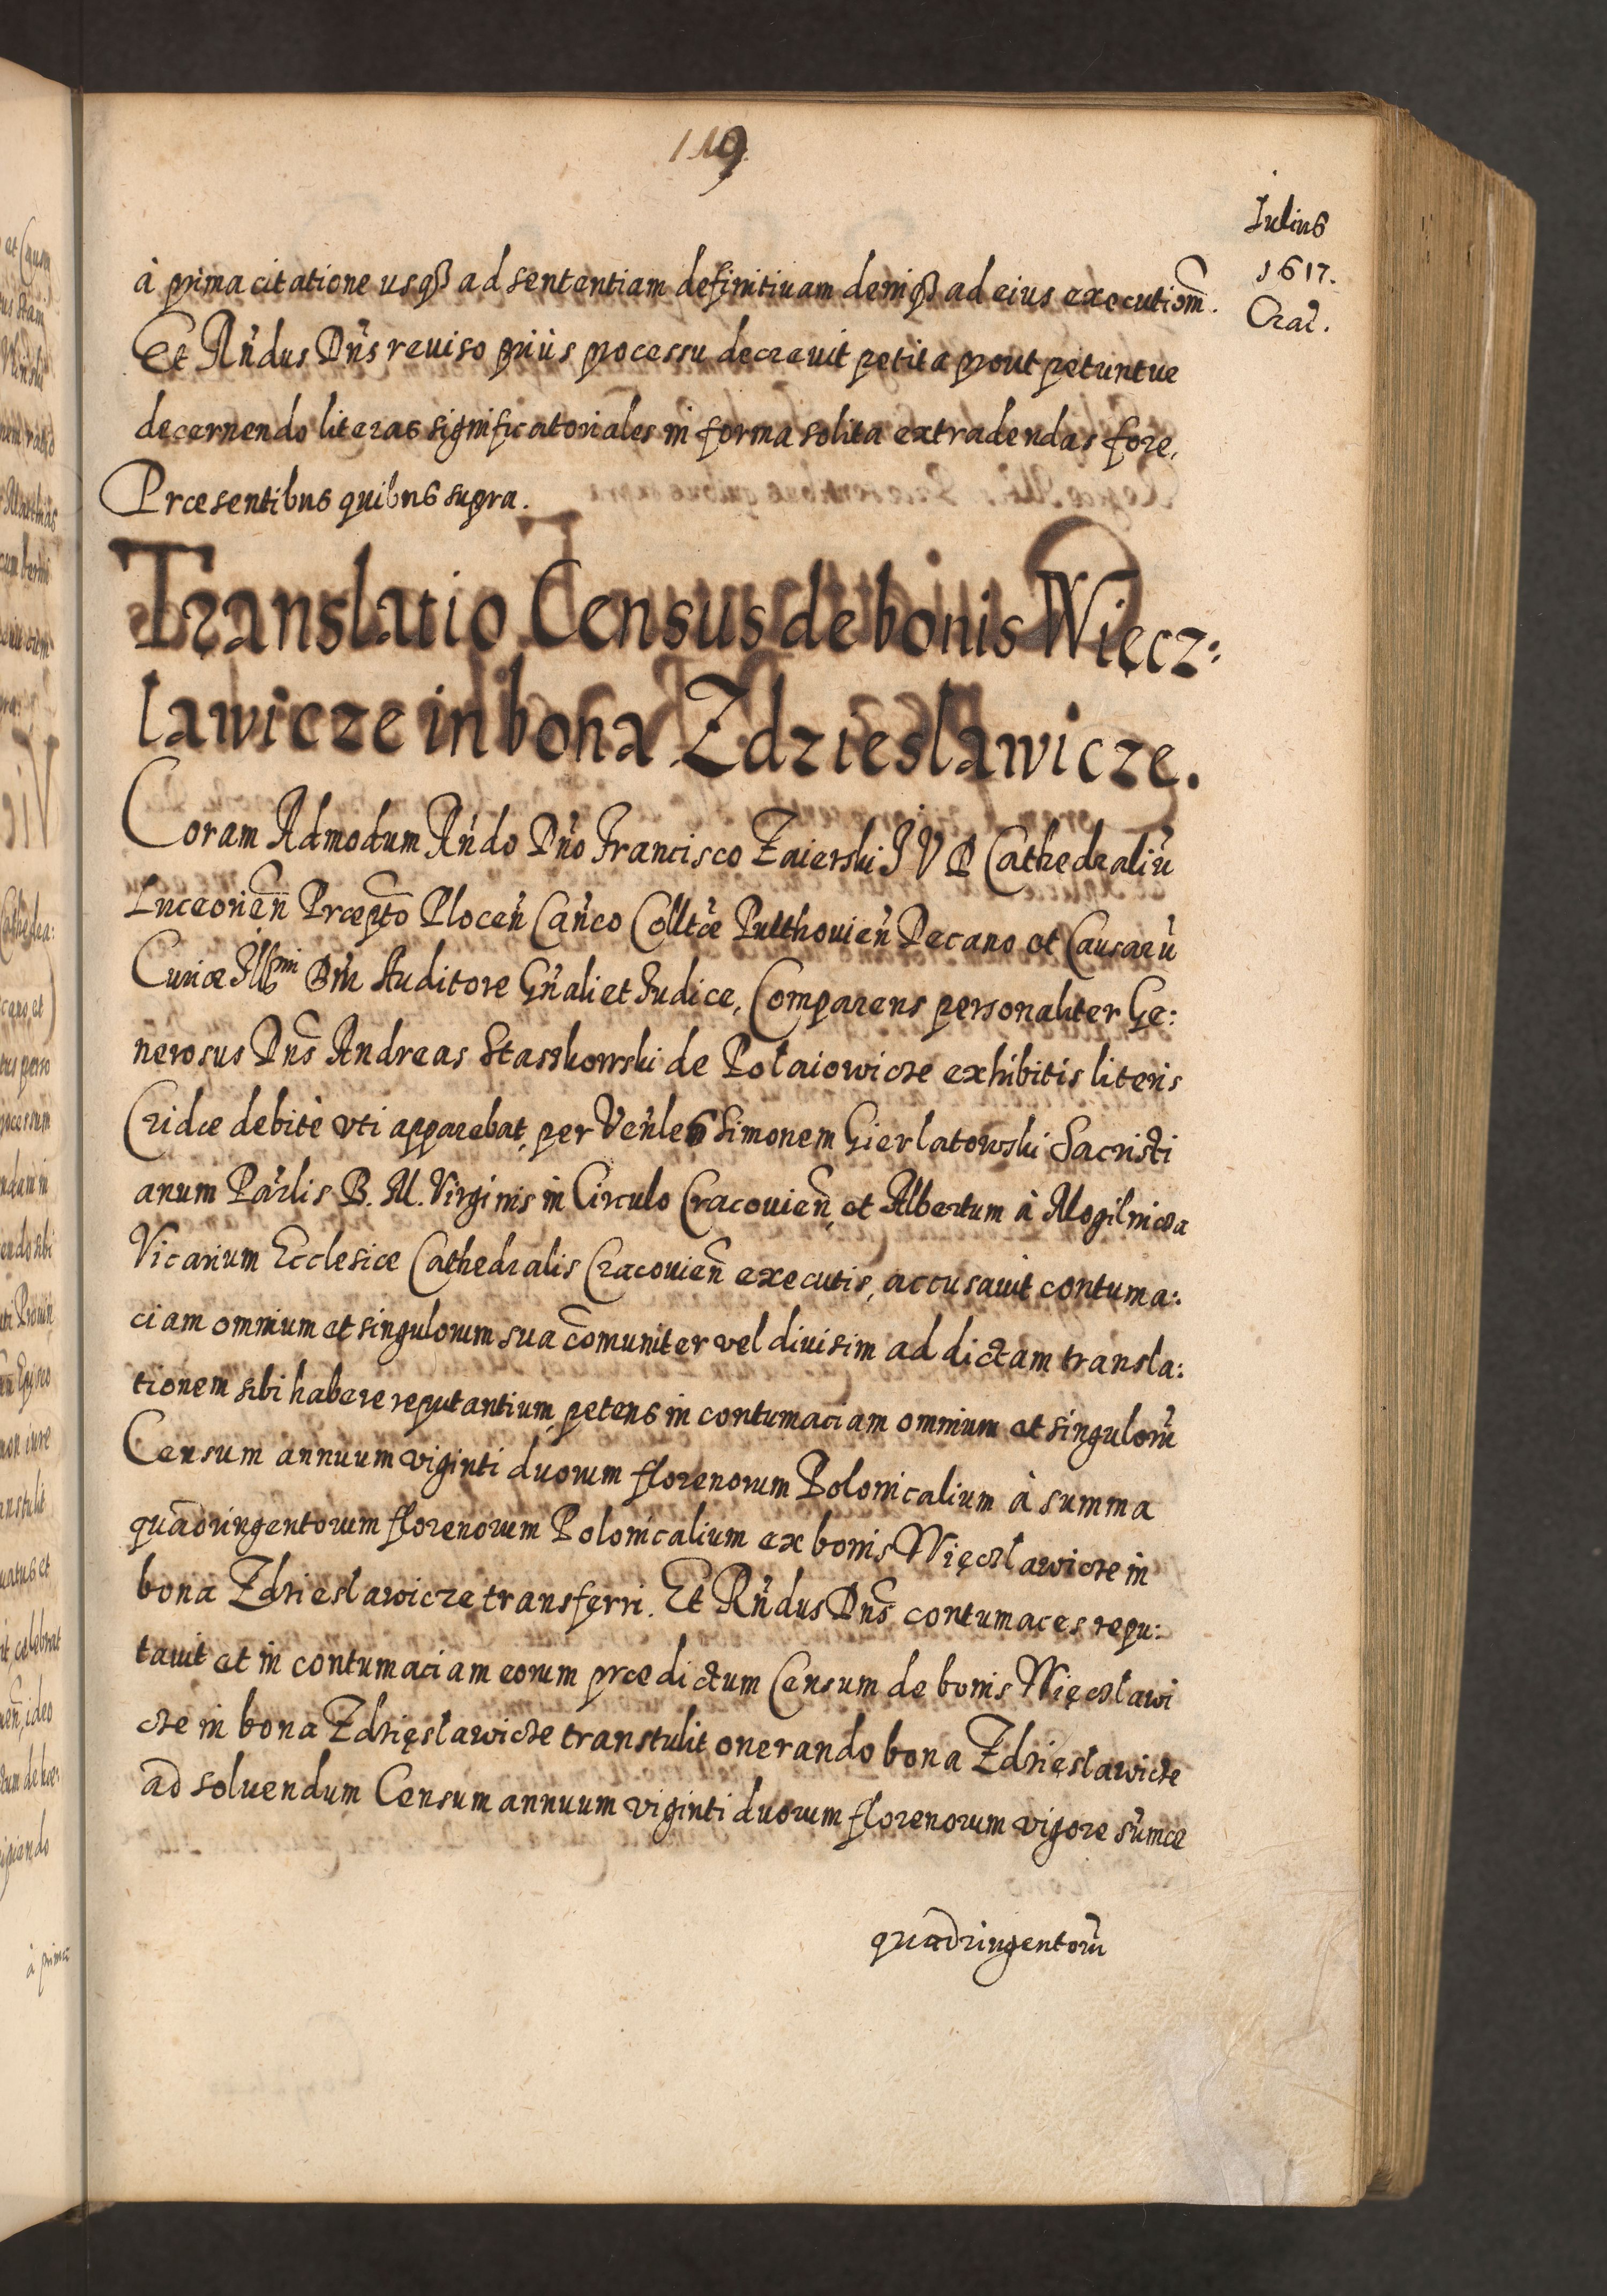 119
Iulius
1617.
Crac̃.
à prima citatione usq́ꝫ ad sententiam definitiuam deniqꝫ ad eius executiom̃.
Et Rńdus Dńs reuiso priùs processu decreuit petita prout petuntur
decernendo literas significatoriales in forma solita extradendas fore,
Præsentibus quibus supra.
Translatio Census de bonis Więcz:
lawicze in bona Zdzieslawicze.
Coram Admodum Rńdo Dńo Francisco Zaierski I V D Cathedraliũ
Luceorień Præptõ Ploceń Cańco Colltæ Pulthouień Decano et Causarũ
Curiæ Illmi Auditore Gńali et Iudice, Comparens personaliter Ge:
nerosus Dńs Andreas Staszkowski de Polaiowicze exhibitis literis
Cridæ debitè vti apparebat, per Veńles Simonem Gierlatowski Sacristi
anum Parlis B. M. Virginis in Circulo Cracouień, et Albertum à Mogilnicza
Vicarium Ecclesiæ Cathedralis Cracouień executis, accusauit contuma:
ciam omnium et singulorum sua com̃uniter vel diuisim ad dictam transla:
tionem sibi habere reputantium petens in contumaciam omnium et singulorũ
Censum annuum viginti duorum florenorum Polonicalium à summa
quadringentorum florenorum Polonicalium ex bonis Więczlawicze in
bona Zdzieslawicze transferri. Et Rńdus Dńs contumaces repu:
tauit et in contumaciam eorum prædictum Censum de bonis Więczlawi
cze in bona Zdzięslawicze transtulit onerando bona Zdzięslawicze
ad soluendum Censum annuum viginti duorum florenorum vigore sum̃æ
quadringentorũ